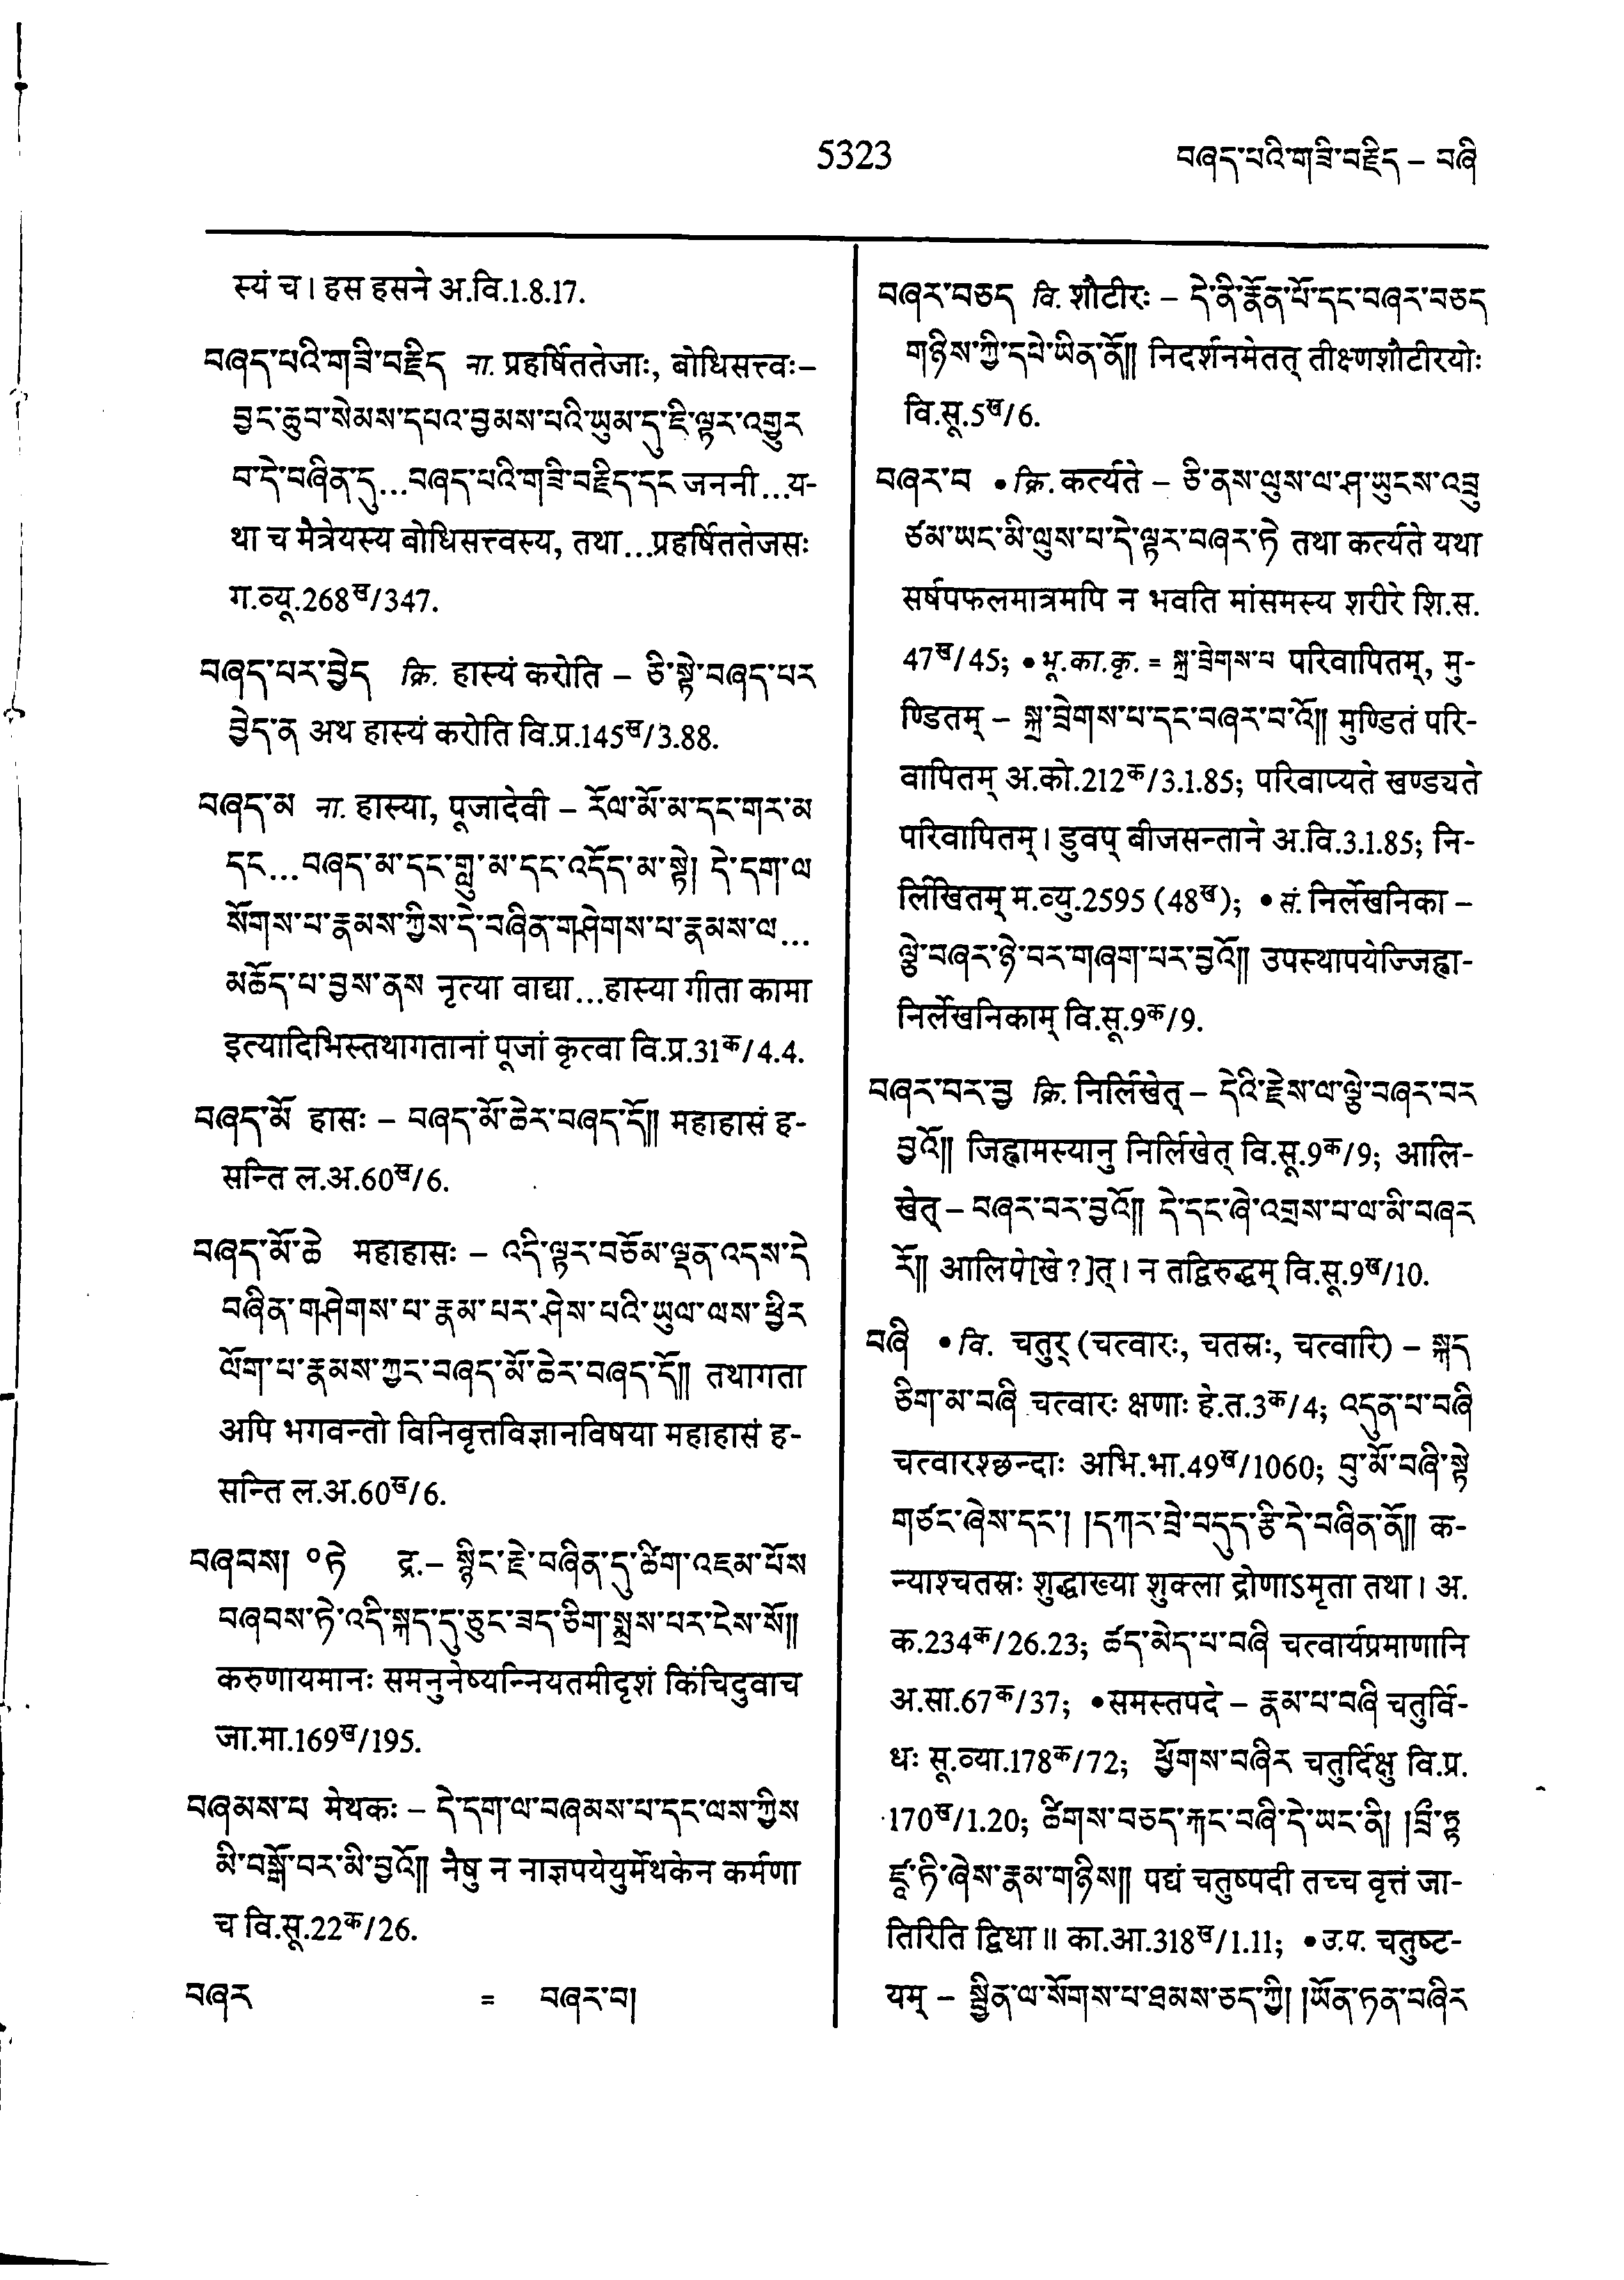 5323
བཞད་པའི་གཟི་བརྗིད – བཞི
स्यं च । हस हसने अ.वि.1.8.17.
བཞད་པའི་གཟི་བརྗིད ना. प्रहर्षिततेजाः, बोधिसत्त्वः–
བྱང་ཆུབ་སེམས་དཔའ་བྱམས་པའི་ཡུམ་དུ་ཇི་ལྟར་འགྱུར
བ་དེ་བཞིན་དུ...བཞད་པའི་གཟི་བརྗིད་དང जननी...य-
था च मैत्रेयस्य बोधिसत्त्वस्य, तथा...प्रहर्षिततेजसः
ग.व्यू.268ख/347.
བཞད་པར་བྱེད क्रि. हास्यं करोति – ཅི་སྟེ་བཞད་པར
བྱེད་ན अथ हास्यं करोति वि.प्र.145ख/3.88.
བཞད་མ ना. हास्या, पूजादेवी – རོལ་མོ་མ་དང་གར་མ
དང...བཞད་མ་དང་གླུ་མ་དང་འདོད་མ་སྟེ། དེ་དག་ལ
སོགས་པ་རྣམས་ཀྱིས་དེ་བཞིན་གཤེགས་པ་རྣམས་ལ...
མཆོད་པ་བྱས་ནས नृत्या वाद्या...हास्या गीता कामा
इत्यादिभिस्तथागतानां पूजां कृत्वा वि.प्र.31क/4.4.
བཞད་མོ हासः – བཞད་མོ་ཆེར་བཞད་དོ༎ महाहासं ह-
सन्ति ल.अ.60ख/6.
བཞད་མོ་ཆེ महाहासः – འདི་ལྟར་བཅོམ་ལྡན་འདས་དེ
བཞིན་གཤེགས་པ་རྣམ་པར་ཤེས་པའི་ཡུལ་ལས་ཕྱིར
ལོག་པ་རྣམས་ཀྱང་བཞད་མོ་ཆེར་བཞད་དོ༎ तथागता
अपि भगवन्तो विनिवृत्तविज्ञानविषया महाहासं ह-
सन्ति ल.अ.60ख/6.
བཞབས། ०ཏེ द्र.– སྙིང་རྗེ་བཞིན་དུ་ཚིག་འཇམ་པོས
བཞབས་ཏེ་འདི་སྐད་དུ་ཅུང་ཟད་ཅིག་སྨྲས་པར་ངེས་སོ༎
करुणायमानः समनुनेष्यन्नियतमीदृशं किंचिदुवाच
जा.मा.169ख/195.
བཞམས་པ मेथकः – དེ་དག་ལ་བཞམས་པ་དང་ལས་ཀྱིས
མི་བསྒོ་བར་མི་བྱའོ༎ नैषु न नाज्ञपयेयुर्मेथकेन कर्मणा
च वि.सू.22क/26.
བཞར = བཞར་བ།
བཞར་བཅད वि. शौटीरः – དེ་ནི་རྣོན་པོ་དང་བཞར་བཅད
གཉིས་ཀྱི་དཔེ་ཡིན་ནོ༎ निदर्शनमेतत् तीक्ष्णशौटीरयोः
वि.सू.5ख/6.
བཞར་བ • क्रि. कर्त्यते – ཅི་ནས་ལུས་ལ་ཤ་ཡུངས་འབྲུ
ཙམ་ཡང་མི་ལུས་པ་དེ་ལྟར་བཞར་ཏེ तथा कर्त्यते यथा
सर्षपफलमात्रमपि न भवति मांसमस्य शरीरे शि.स.
47ख/45; • भू.का.कृ. = སྐྲ་བྲེགས་པ परिवापितम्, मु-
ण्डितम् – སྐྲ་བྲེགས་པ་དང་བཞར་བ་འོ༎ मुण्डितं परि-
वापितम् अ.को.212क/3.1.85; परिवाप्यते खण्ड्यते
परिवापितम् । डुवप् बीजसन्ताने अ.वि.3.1.85; नि-
र्लिखितम् म.व्यु.2595 (48ख); • सं. निर्लेखनिका –
ལྕེ་བཞར་ཉེ་བར་གཞག་པར་བྱའོ༎ उपस्थापयेज्जिह्वा-
निर्लेखनिकाम् वि.सू.9क/9.
བཞར་བར་བྱ क्रि. निर्लिखेत् – དེའི་རྗེས་ལ་ལྕེ་བཞར་བར
བྱའོ༎ जिह्वामस्यानु निर्लिखेत् वि.सू.9क/9; आलि-
खेत् – བཞར་བར་བྱའོ༎ དེ་དང་ཞེ་འགྲས་པ་ལ་མི་བཞར
རོ༎ आलिपे[खे ?]त् । न तद्विरुद्धम् वि.सू.9ख/10.
བཞི • वि. चतुर् (चत्वारः, चतस्रः, चत्वारि) – སྐད
ཅིག་མ་བཞི चत्वारः क्षणाः हे.त.3क/4; འདུན་པ་བཞི
चत्वारश्छन्दाः अभि.भा.49ख/1060; བུ་མོ་བཞི་སྟེ
གཙང་ཞེས་དང་། །དཀར་བྲེ་བདུད་རྩི་དེ་བཞིན་ནོ༎ क-
न्याश्चतस्रः शुद्धाख्या शुक्ला द्रोणाऽमृता तथा । अ.
क.234क/26.23; ཚད་མེད་པ་བཞི चत्वार्यप्रमाणानि
अ.सा.67क/37; • समस्तपदे – རྣམ་པ་བཞི चतुर्वि-
धः सू.व्या.178क/72; ཕྱོགས་བཞིར चतुर्दिक्षु वि.प्र.
170ख/1.20; ཚིགས་བཅད་རྐང་བཞི་དེ་ཡང་ནི། །བྲྀ་ཏྟ
ཛཱ་ཏི་ཞེས་རྣམ་གཉིས༎ पद्यं चतुष्पदी तच्च वृत्तं जा-
तिरिति द्विधा ॥ का.आ.318ख/1.11; • उ.प. चतुष्ट-
यम् – སྦྱིན་ལ་སོགས་པ་ཐམས་ཅད་ཀྱི། །ཡོན་ཏན་བཞིར